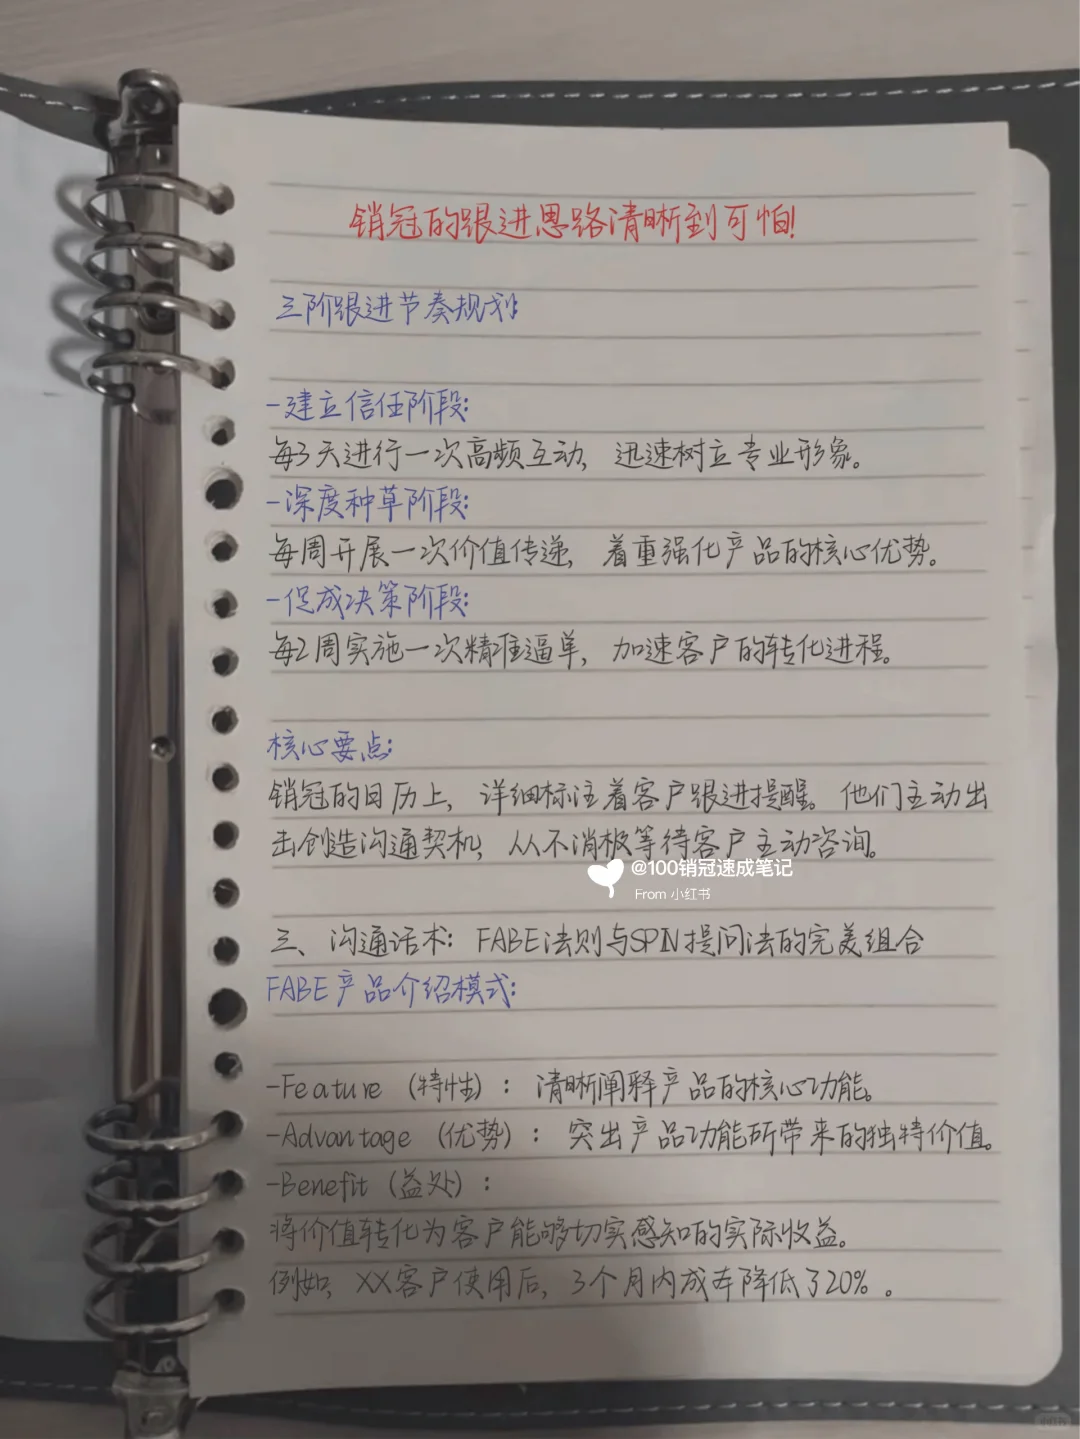 销冠的跟进思路清晰到可怕!
三阶跟进节奏规划
-建立信任阶段:
每3天进行一次高频互动，迅速树立专业形象。
-深度种草阶段:
每周开展一次价值传递，着重强化产品的核心优势。
-促成决策阶段:
每2周实施一次精准逼单，加速客户的转化进程。
核心要点:
销冠的日历上，详细标注着客户跟进提醒。他们主动出
击创造沟通契机，从不消极等待客户主动咨询。
@100销冠速成笔记
From 小红书
三、沟通话术：FABE法则与SPIN提问法的完美组合
FABE产品介绍模式:
-Feature（特性）：清晰阐释产品的核心功能。
-Advantage（优势）：突出产品功能所带来的独特价值。
-Benefit（益处）：
将价值转化为客户能够切实感知的实际收益。
例如，XX客户使用后，3个月内成本降低了20%。